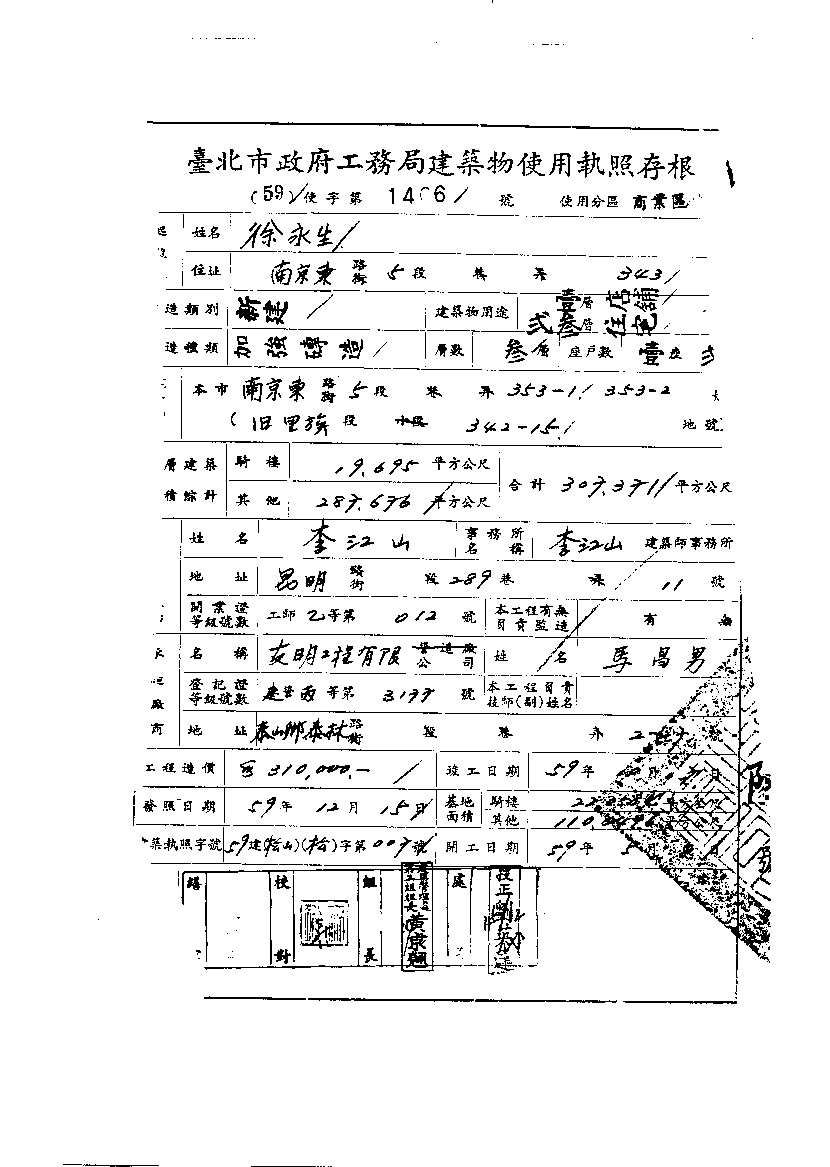 臺北市政府工務局建築物使用執照存根
(59)使字第 1406 號 使用分區 商業區
姓名 徐永生
住址 南京東路街 5段 巷 弄 343
造類別 新建 建築物用途 壹層店舖 貳叁層住宅
造種類 加強磚造 層數 叁層 座戶數 壹座
本市 南京東路街 5段 巷 弄 353-1 353-2
(旧里族段 小段 342-15 地號
層建築 騎樓 19.695 平方公尺 合計 307.371 平方公尺
積綜計 其他 287.676 平方公尺
姓名 李江山 事務所名稱 李江山 建築師事務所
地址 昆明路街 段 289巷 弄 11 號
開業證等級號數 工師乙等第 012 號 本工程有無負責監造 有 無
名稱 友明工程有限 營造廠公司 姓名 馬昌男
登記證等級號數 等第 號 本工程負責技師(副)姓名
廠
商 地址 泰山鄉泰林路街 段 巷 弄 號
工程造價 310,000.- 竣工日期 59年 月 日
發照日期 59年 12月 15日 基地面積 騎樓
其他
築執照字號 59建(松山)(松)字第 號 開工日期 59年 月 日
繕 校對 組長 黃 處